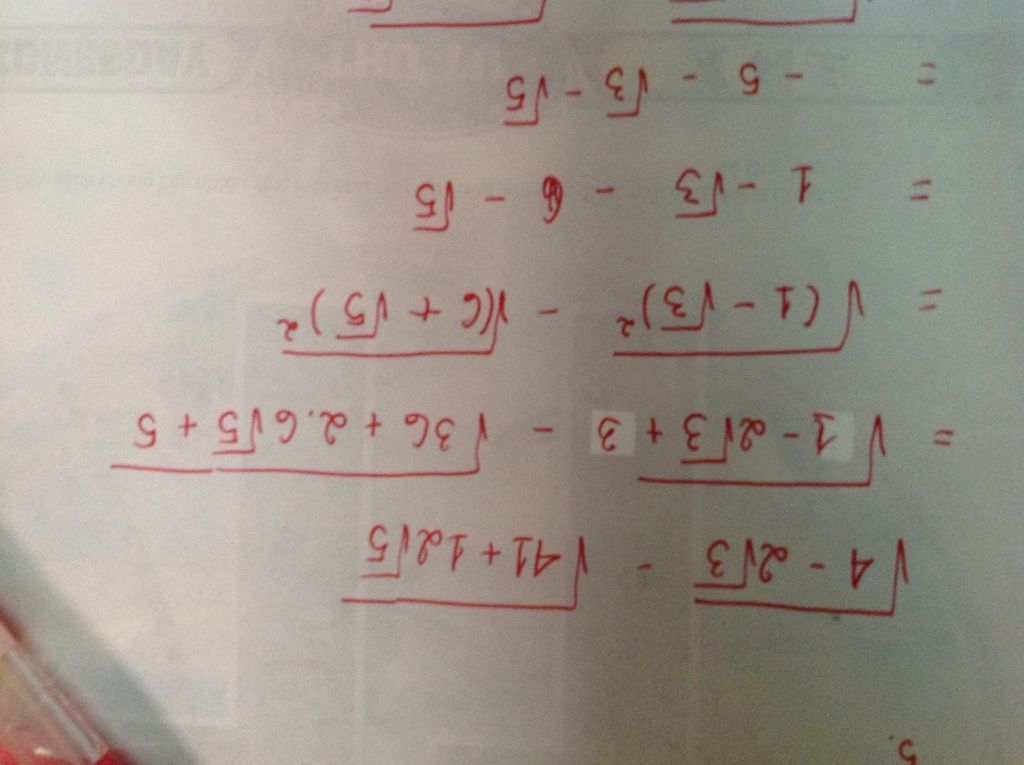 5.
√(4 - 2√3) - √(41 + 12√5)
= √(1 - 2√3 + 3) - √(36 + 2.6√5 + 5)
= √((1 - √3)²) - √((6 + √5)²)
= 1 - √3 - 6 - √5
= - 5 - √3 - √5